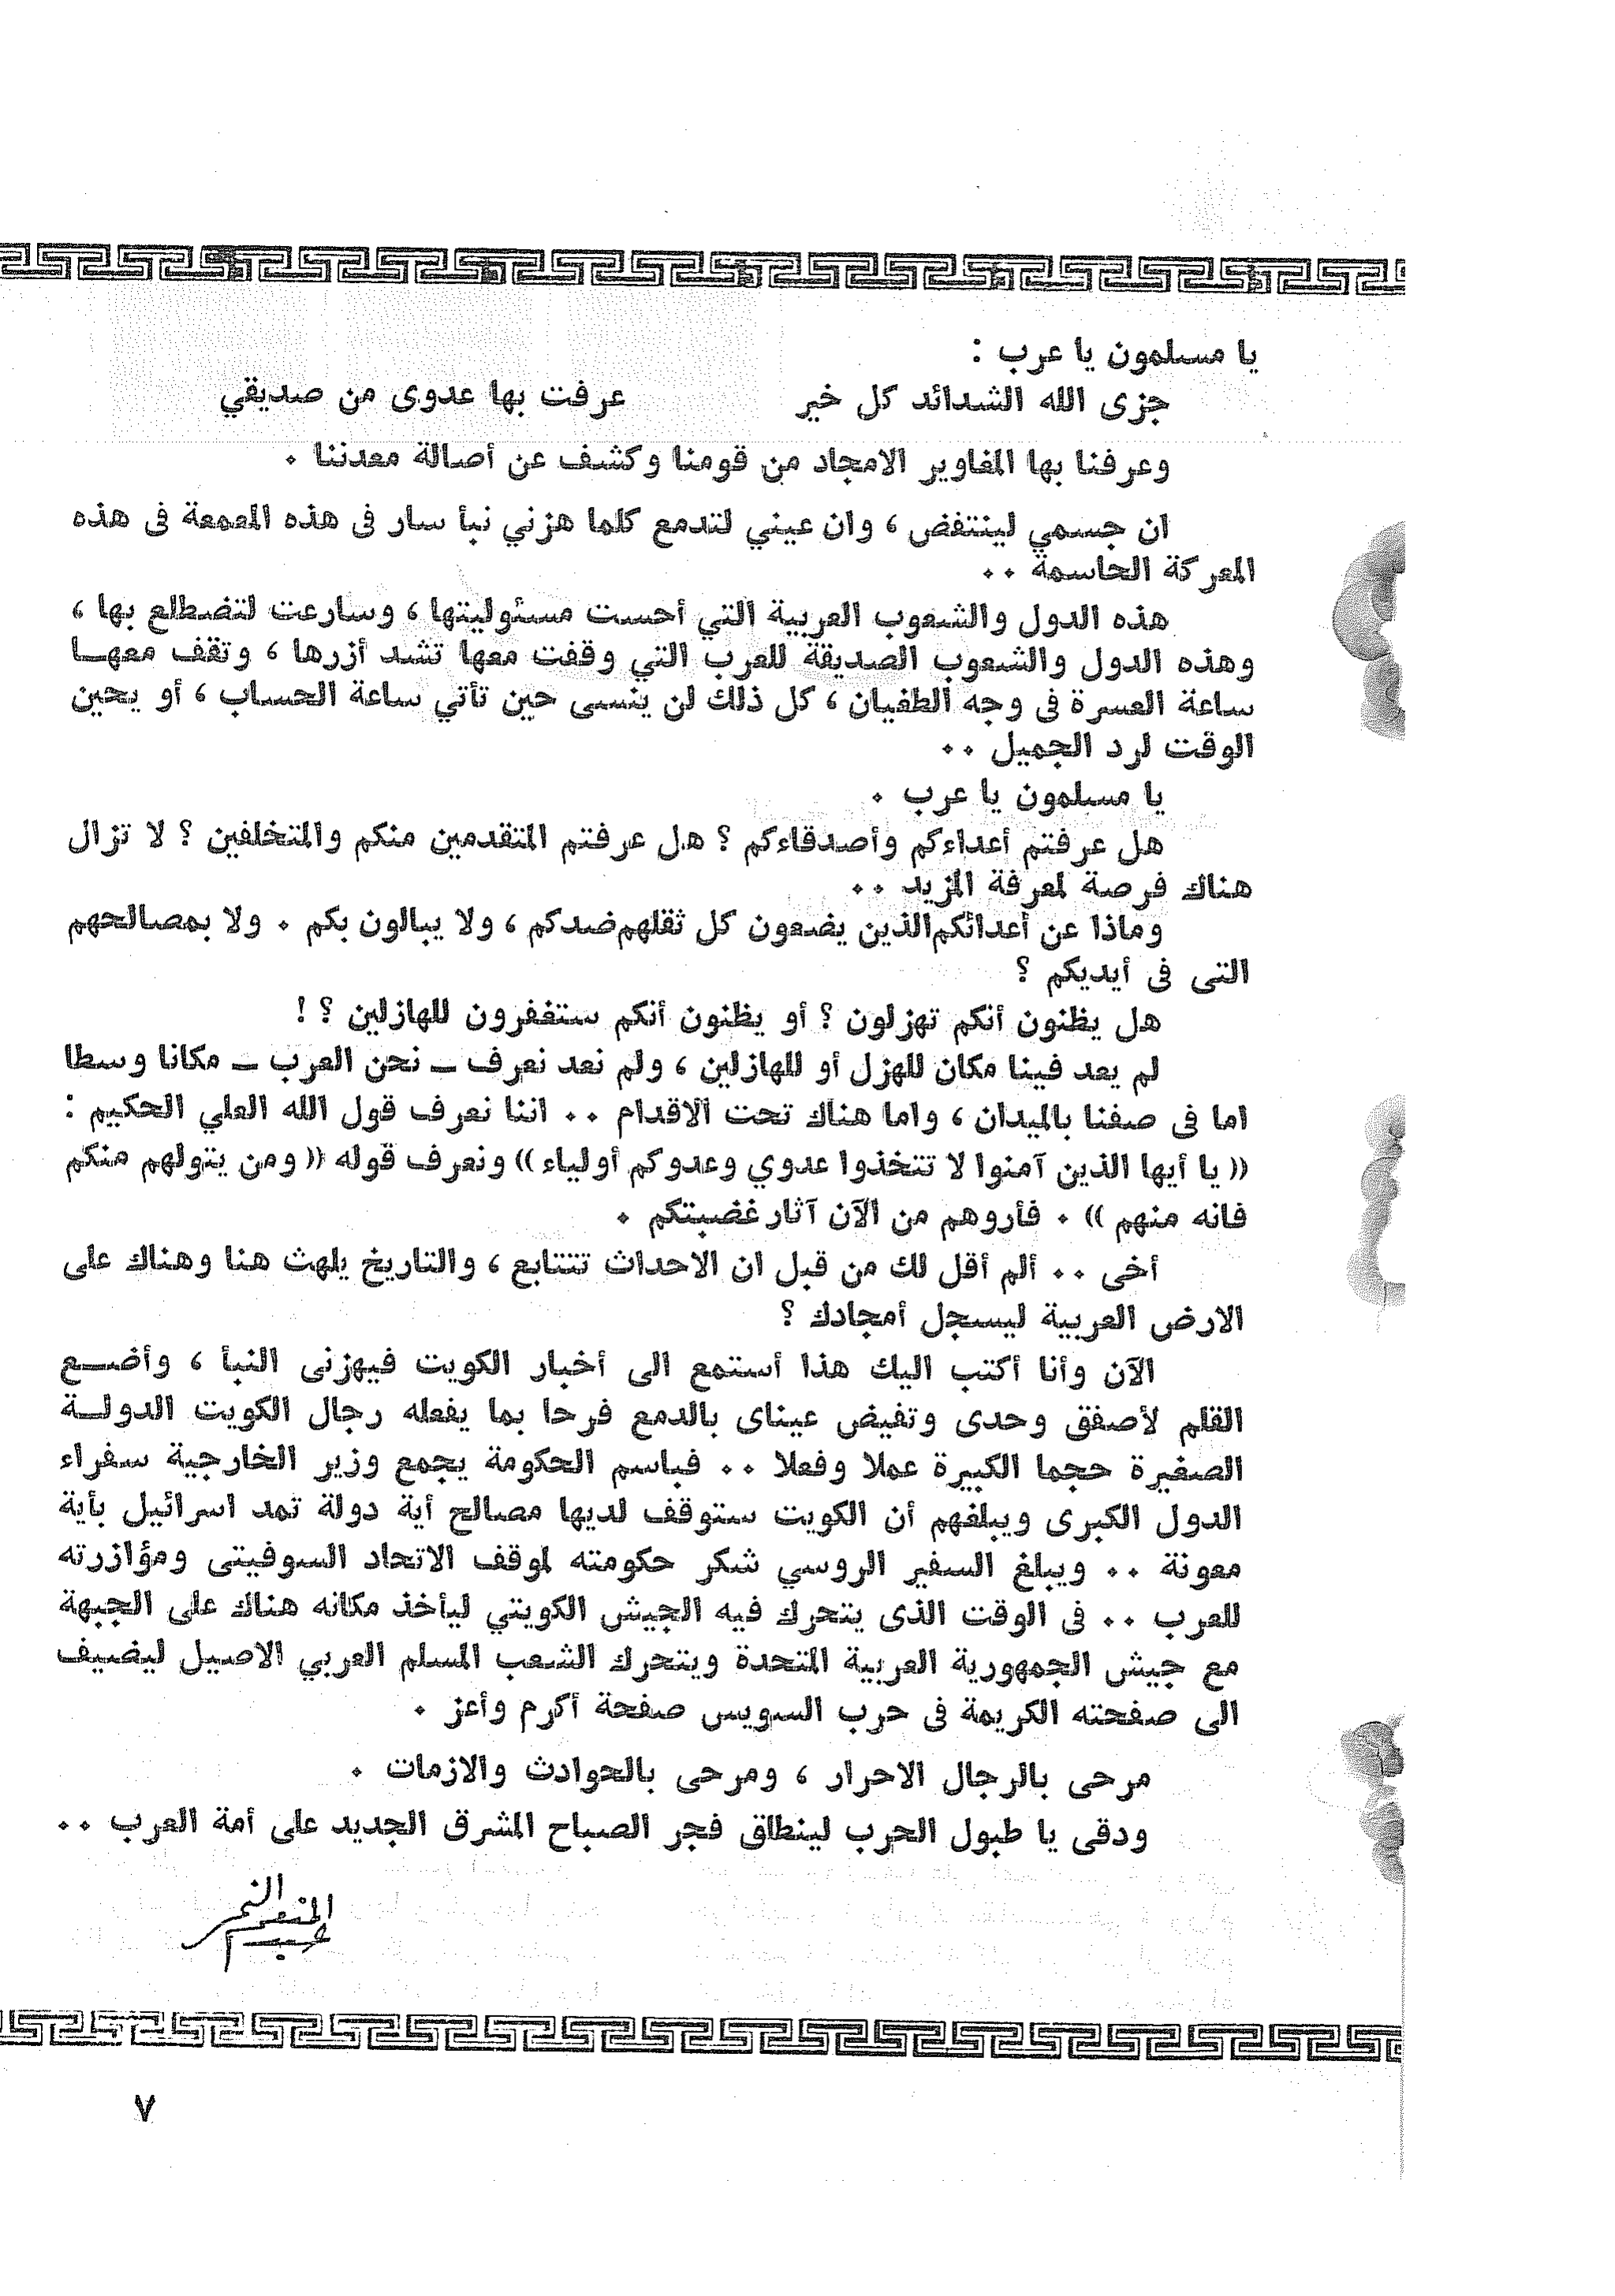 يا مسلمون يا عرب :
جزى الله الشدائد كل خير عرفت بها عدوى من صديقي
وعرفنا بها المغاوير الامجاد من قومنا وكشف عن أصالة معدننا .
ان جسمي لينتفض ، وان عيني لتدمع كلما هزني نبأ سار فى هذه المعمعة فى هذه
المعركة الحاسمة ..
هذه الدول والشعوب العربية التي أحست مسئوليتها ، وسارعت لتضطلع بها ،
وهذه الدول والشعوب الصديقة للعرب التي وقفت معها تشد أزرها ، وتقف معهـا
ساعة العسرة فى وجه الطغيان ، كل ذلك لن ينسى حين تأتي ساعة الحساب ، أو يحين
الوقت لرد الجميل ..
يا مسلمون يا عرب .
هل عرفتم أعداءكم وأصدقاءكم ؟ هل عرفتم المتقدمين منكم والمتخلفين ؟ لا تزال
هناك فرصة لمعرفة المزيد ..
وماذا عن أعدائكم الذين يضعون كل ثقلهم ضدكم ، ولا يبالون بكم . ولا بمصالحهم
التى فى أيديكم ؟
هل يظنون أنكم تهزلون ؟ أو يظنون أنكم ستغفرون للهازلين ؟ !
لم يعد فينا مكان للهزل أو للهازلين ، ولم نعد نعرف ــ نحن العرب ــ مكانا وسطا
اما فى صفنا بالميدان ، واما هناك تحت الاقدام .. اننا نعرف قول الله العلي الحكيم :
(( يا أيها الذين آمنوا لا تتخذوا عدوي وعدوكم أولياء )) ونعرف قوله (( ومن يتولهم منكم
فانه منهم )) . فأروهم من الآن آثار غضبتكم .
أخى .. ألم أقل لك من قبل ان الاحداث تتتابع ، والتاريخ يلهث هنا وهناك على
الارض العربية ليسجل أمجادك ؟
الآن وأنا أكتب اليك هذا أستمع الى أخبار الكويت فيهزنى النبأ ، وأضـع
القلم لأصفق وحدى وتفيض عيناى بالدمع فرحا بما يفعله رجال الكويت الدولـة
الصغيرة حجما الكبيرة عملا وفعلا .. فباسم الحكومة يجمع وزير الخارجية سفراء
الدول الكبرى ويبلغهم أن الكويت ستوقف لديها مصالح أية دولة تمد اسرائيل بأية
معونة .. ويبلغ السفير الروسي شكر حكومته لموقف الاتحاد السوفيتى ومؤازرته
للعرب .. فى الوقت الذى يتحرك فيه الجيش الكويتي ليأخذ مكانه هناك على الجبهة
مع جيش الجمهورية العربية المتحدة ويتحرك الشعب المسلم العربي الاصيل ليضيف
الى صفحته الكريمة فى حرب السويس صفحة أكرم وأعز .
مرحى بالرجال الاحرار ، ومرحى بالحوادث والازمات .
ودقى يا طبول الحرب لينطلق فجر الصباح المشرق الجديد على أمة العرب ..
عبد المنعم النمر
٧